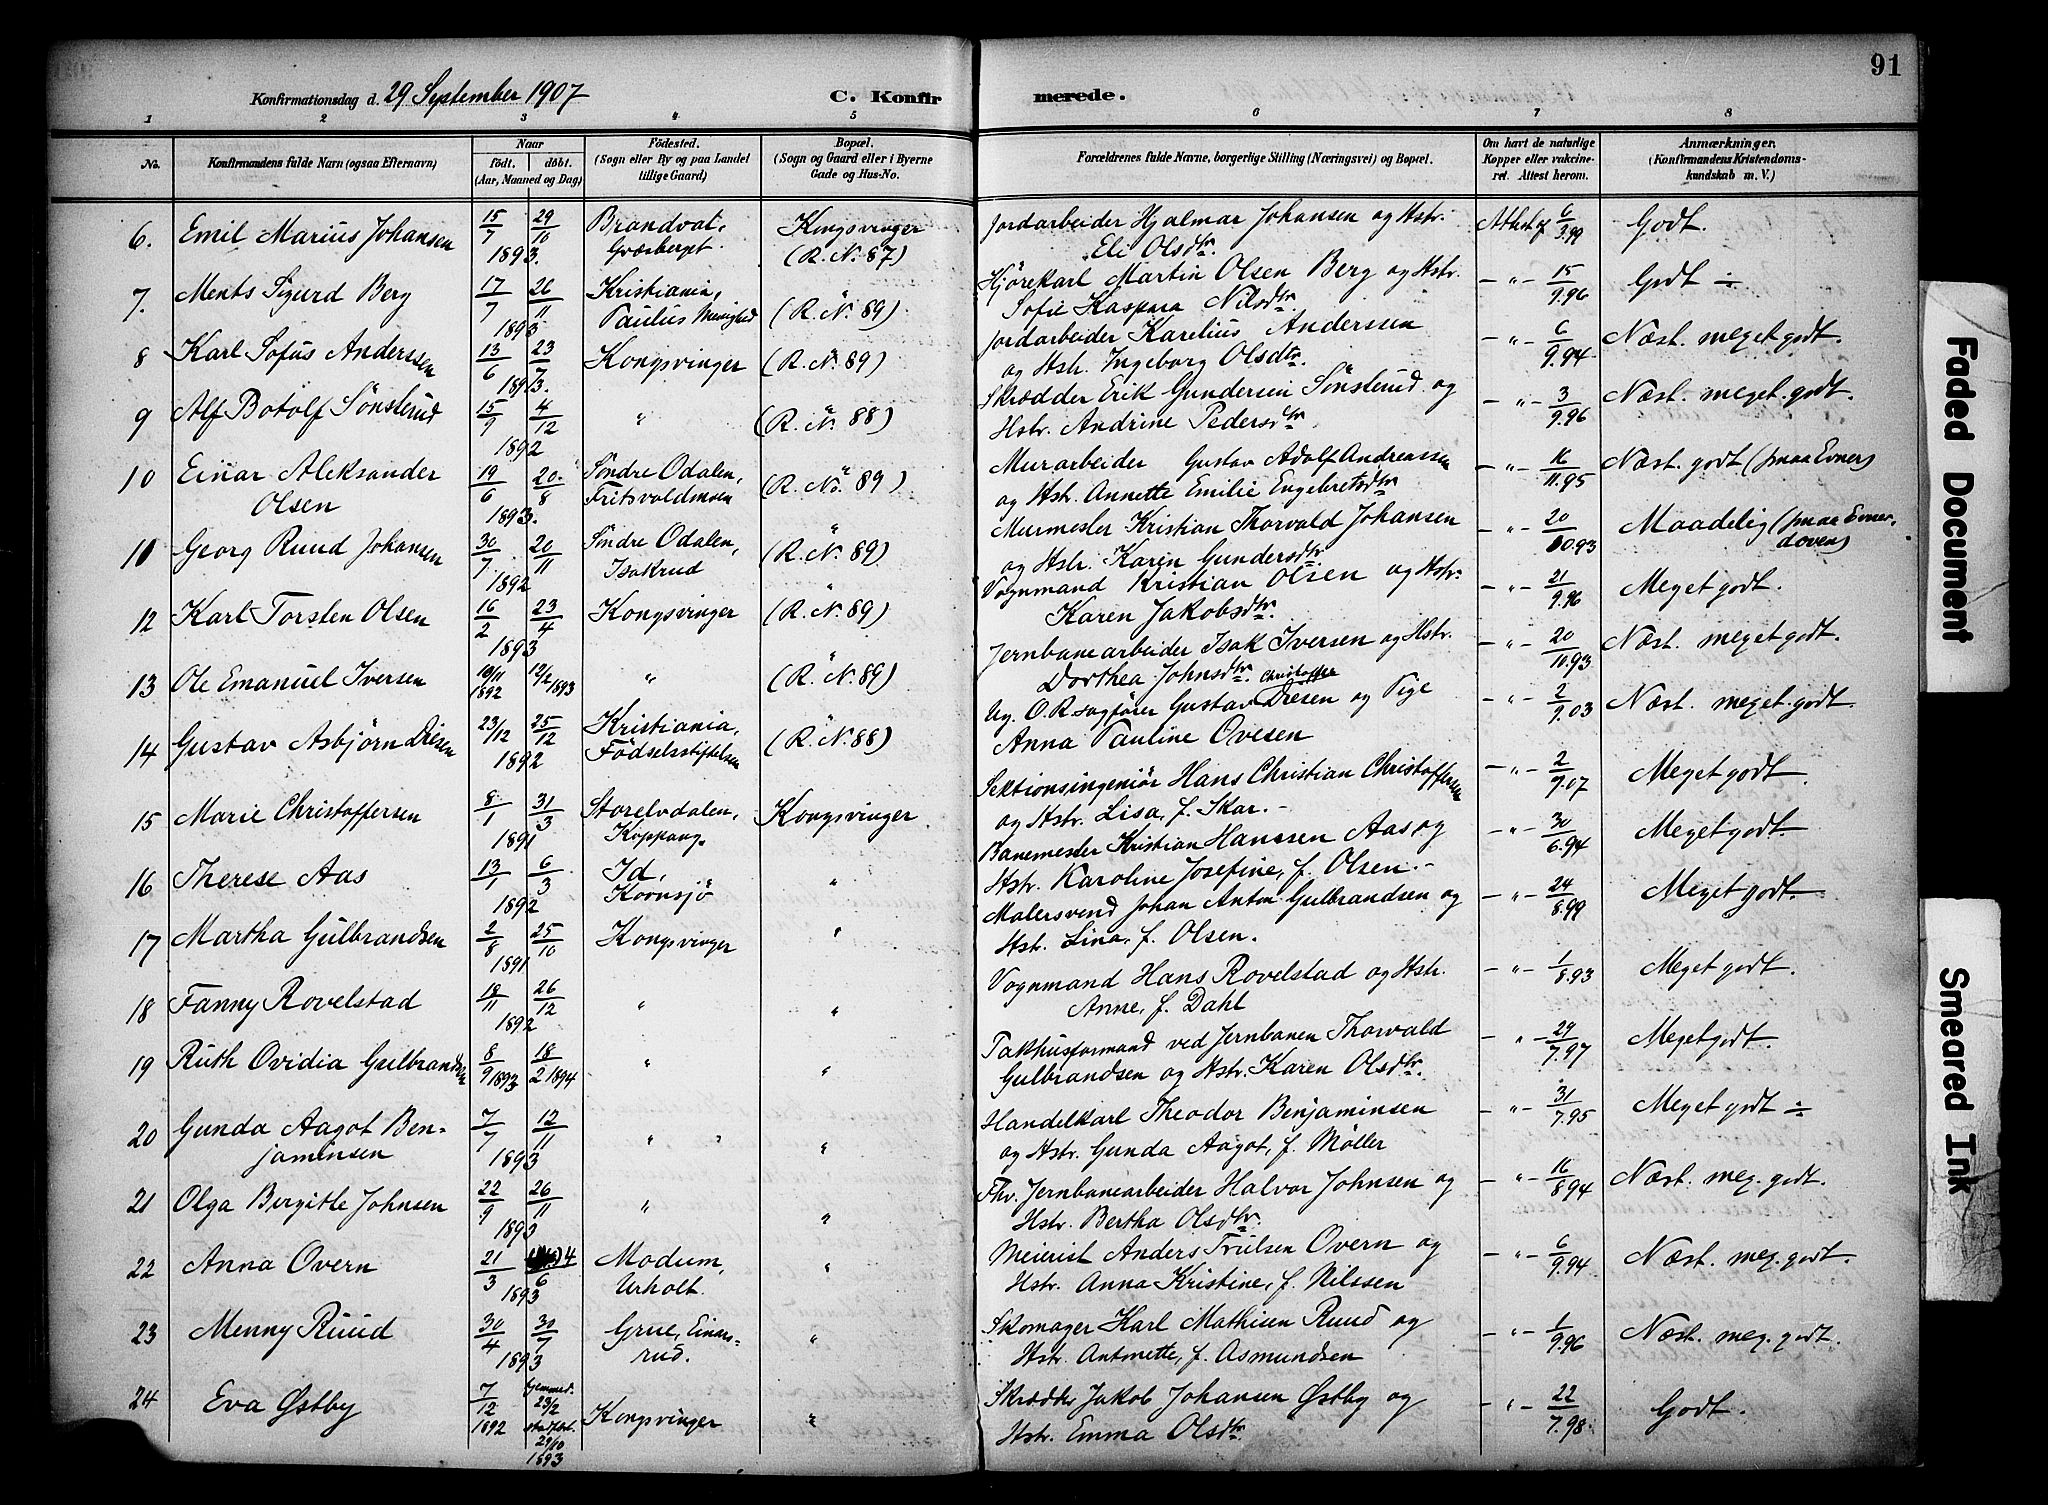 91
Konfirmationsdag d. 29 September 1907
C. Konfirmerede.
1 2 3 4 5 6 7 8
No.
Konfirmandens fulde Navn (ogsaa Efternavn)
Naar
födt. döbt.
(Aar, Maaned og Dag)
Födested.
(Sogn eller By og paa Landet
tillige Gaard)
Bopæl.
(Sogn og Gaard eller i Byerne
Gade og Hus-No.
Forældrenes fulde Navne, borgerlige Stilling (Næringsvei) og Bopæl.
Om havt de naturlige
Kopper eller vakcine-
ret. Attest herom.
Anmærkninger.
(Konfirmandens Kristendoms-
kundskab m. V.)
6. Emil Marius Johansen 15/7 29/10 1893. Brandval, Græsberget. Kongsvinger (R. N. 87) Jordarbeider Hjalmar Johansen og Hstr. Eli Olsdtr. Attest af 6/3.99 Godt.
7. Ments Sigurd Berg 17/7 26/11 1893 Kristiania, Paulus Menighed " (R. N. 89) Hjørekarl Martin Olsen Berg og Hstr. Sofie Kaspara Nilsdtr. – " – 15/9.96 Godt ÷
8 Karl Sofus Anderssen 13/6 23/7 1893. Kongsvinger (R. N. 89) Jordarbeider Karelius Anderssen og Hstr. Ingeborg Olsdtr. – " – 6/9.94 Næst. meget godt.
9 Alf Botolf Sönsterud 15/9 4/12 1892 " (R. N. 88) Skrædder Erik Gundersen Sönsterud og Hstr. Andrine Pedersdtr – " – 3/9.96 Næst. meget godt.
10 Einar Aleksander Olsen 19/6 20/8 1893. Söndre Odalen, Fritsvoldmoen (R. No. 89) Murarbeider Gustav Adolf Andreassen og Hstr. Annette Emilie Engebretsdtr – " – 16/11.95 Næst. godt (smaa Evner)
10 Georg Ruud Johansen 30/7 20/11 1892 Söndre Odalen, Isakrud " (R. N. 89) Murmester Kristian Thorvald Johansen og Hstr. Karen Gundersdtr. – " – 20/10.93 Maadelig (smaa Evner, doven)
12 Karl Torsten Olsen 16/2 23/4 1893 Kongsvinger " (R. N. 89) Vognmand Kristian Olsen og Hstr. Karen Jakobsdtr. – " – 21/9.96 Meget godt.
13 Ole Emanuel Iversen 10/11 1892 12/2 1893 " " (R. N. 89) Jernbanearbeider Isak Iversen og Hstr. Dorthea Johnsdtr. – " – 20/11.93 Næst. meget godt.
14 Gustav Asbjörn Diesen 23/12 25/12 1892 Kristiania, Födselsstiftelsen (R. N. 88) Ug. O. R. sagförer Gustav Christoffer Diesen og Pige Anna Pauline Ovesen – " – 2/9.03 Næst. meget godt.
15 Marie Christoffersen 8/1 31/3 1891 Storelvdalen, Koppang. Kongsvinger Sektionsingeniör Hans Christian Christoffersen og Hstr. Lisa, f. Skar. – – " – 2/7.07 Meget godt.
16 Therese Aas 13/1 6/3 1892 Id, Kornsjö " Banemester Kristian Hanssen Aas og Hstr. Karoline Josefine, f. Olsen. – – " – 30/6.94 Meget godt.
17 Martha Gulbrandsen 2/8 25/10 1891 Kongsvinger " Malersvend Johan Anton Gulbrandsen og Hstr. Lina, f. Olsen. – " – 24/8.99 Meget godt.
18 Fanny Rovelstad 18/11 26/12 1892 " " Vognmand Hans Rovelstad og Hstr. Anne, f. Dahl – " – 1/8.93 Meget godt.
19 Ruth Ovidia Gulbrandsen 8/9 1893 18/2 1894 " " Pakhusformand ved Jernbanen Thorvald Gulbrandsen og Hstr. Karen Olsdtr. – " – 29/7.97 Meget godt.
20 Gunda Aagot Ben- jaminsen 7/7 12/11 1893 " " " Handelkarl Theodor Benjaminsen og Hstr. Gunda Aagot, f. Møller – " – 31/7.95 Meget godt ÷
21 Olga Bergitte Johnsen 22/9 26/11 1893 " " Fhv. Jernbanearbeider Halvor Johnsen og Hstr. Bertha Olsdtr. – " – 16/8.94 Næst. meg. godt.
22 Anna Overn 21/3 4/6 1893 Modum, Urholt. " Meierist Anders Trulsen Overn og Hstr. Anna Kristine, f. Nilssen – " – 6/9.94 Næst. meg. godt.
23 Menny Ruud 30/4 30/7 1893 Grue, Einars- rud. " Skomager Karl Mathisen Ruud og Hstr. Antonette, f. Asmundsen – " – 1/9.96 Næst. meg. godt.
24 Eva Østby 7/12 1892 hjemmed. 23/2 stadfæst. 29/10 1893 Kongsvinger " Skrædder Jakob Johansen Østby og Hstr. Emma Olsdtr. – " – 22/7.98 Godt.
Faded Document
Smeared Ink